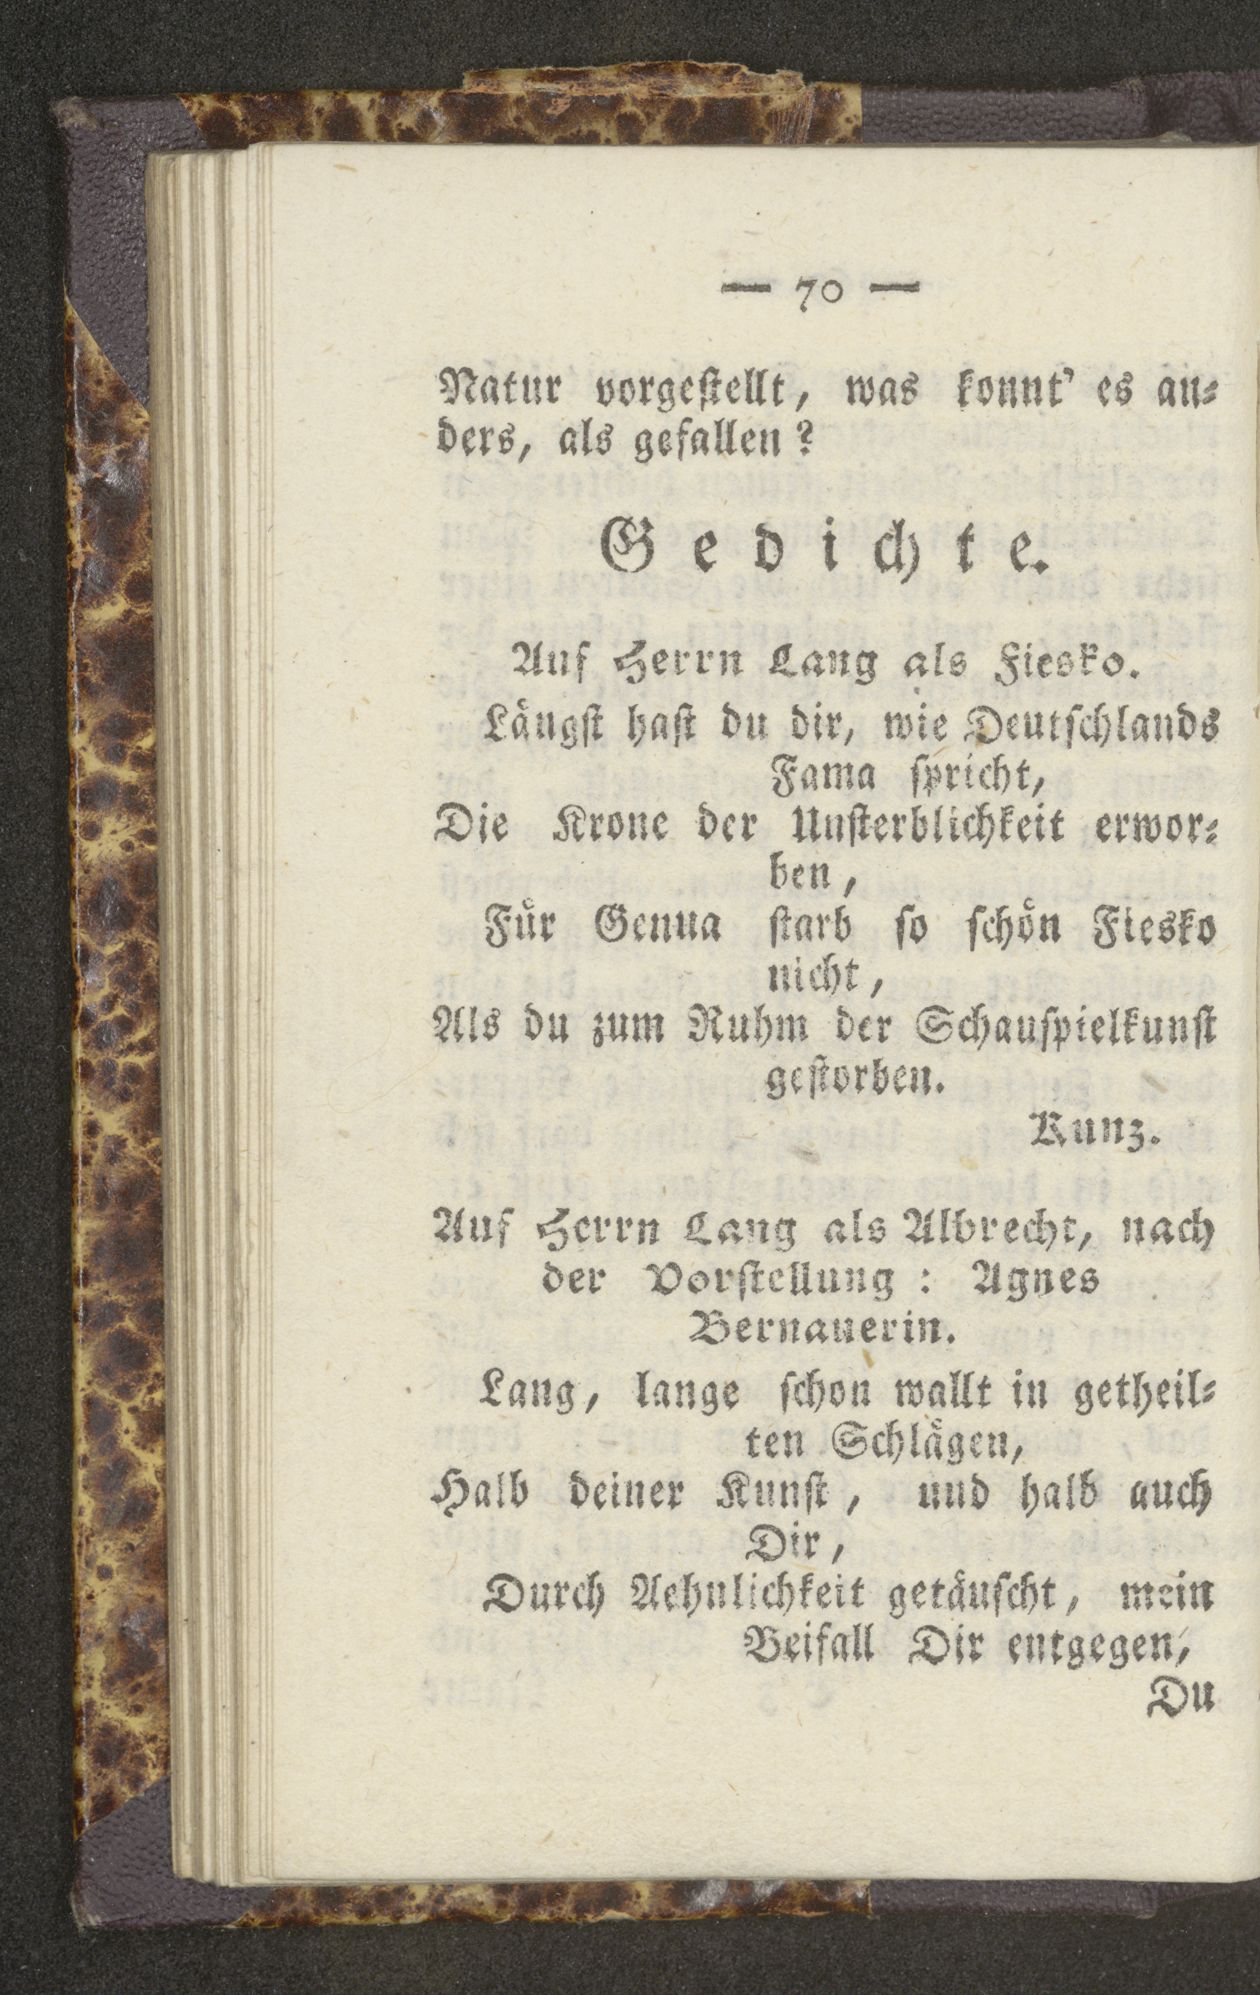 — 70 —
Natur vorgeſtellt, was konnt' es an⸗
ders, als gefallen?
Gedichte.
Auf Herrn Lang als Fiesko.
Längſt haſt du dir, wie Deutſchlands
Fama ſpricht,
Die Krone der Unſterblichkeit erwor⸗
ben,
Für Genua ſtarb ſo ſchön Fiesko
nicht,
Als du zum Ruhm der Schauſpielkunſt
geſtorben.
Kunz.
Auf Herrn Lang als Albrecht, nach
der Vorſtellung: Agnes
Bernauerin.
Lang, lange ſchon wallt in getheil⸗
ten Schlägen,
Halb deiner Kunſt, und halb auch
Dir,
Durch Aehnlichkeit getäuſcht, mein
Beifall Dir entgegen,
Du